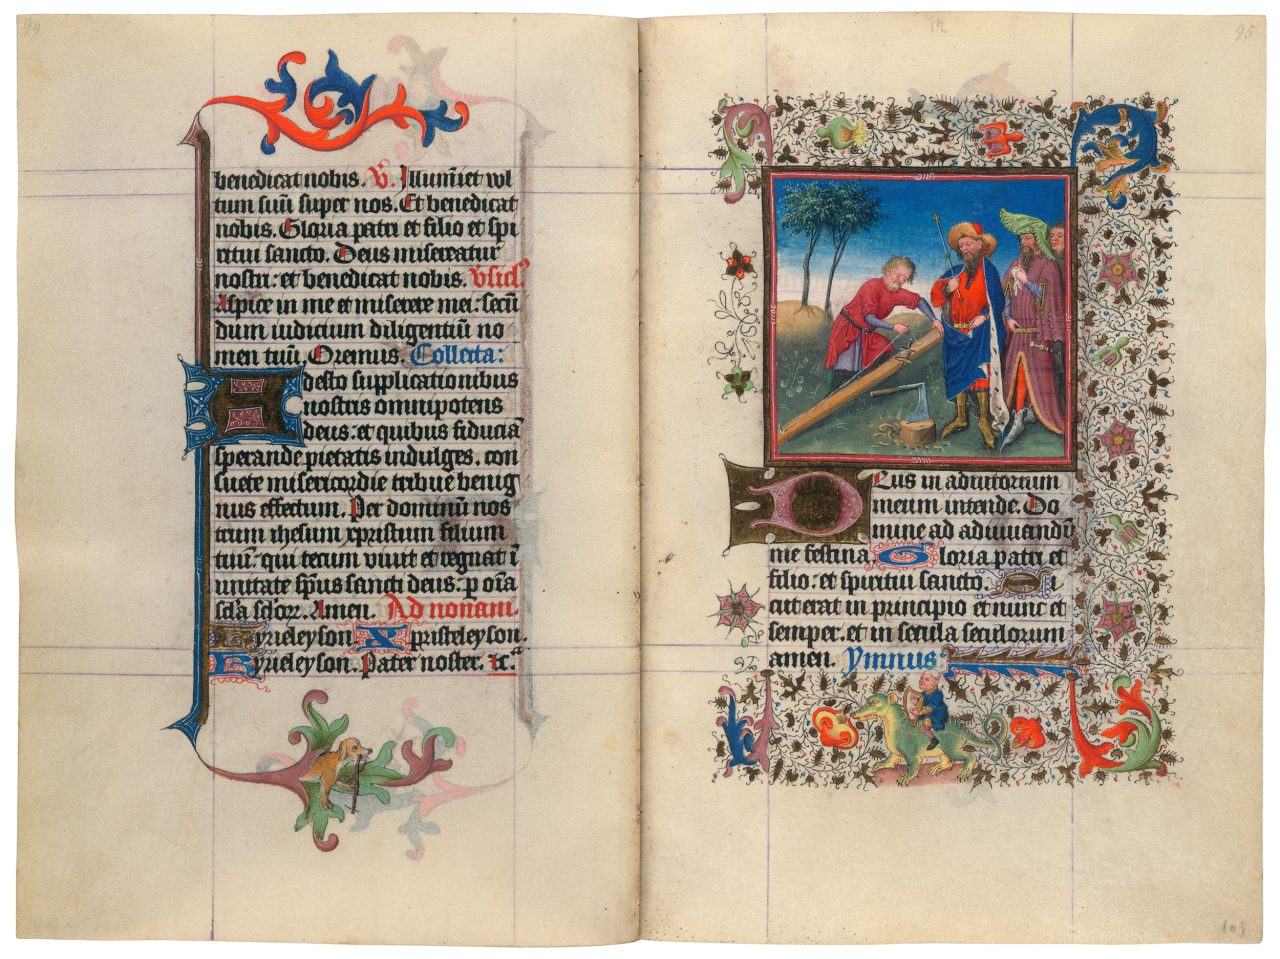 94
benedicat nobis. V. Illum̄et vul
tum suū super nos. Et benedicat
nobis. Gloria patri et filio et spi
ritui sancto. Deus misereatur
nostri: et benedicat nobis. Vsicl'.
Aspice in me et miserere mei: secū
dum iudicium diligentiū no
men tuū. Oremus. Collecta:
Adesto supplicationibus
nostris omnipotens
deus: et quibus fiduciā
sperande pietatis indulges. con
suete misericordie tribue benig
nus effectum. Per dominū nos
trum ihesum xpristum filium
tuū: qui tecum viuit et regnat ī
unitate sp̄us sancti deus: p oīa
scl'a scl'orz. Amen. Ad nonam.
Kyrieleyson Xpristeleyson.
Kyrieleyson. Pater noster. &c.
95
Deus in adiutorium
meum intende. Do
mine ad adiuuandū
me festina. Gloria patri et
filio: et spiritui sancto. Si
cut erat in principio et nunc et
semper. et in secula seculorum
amen. Ymnus: